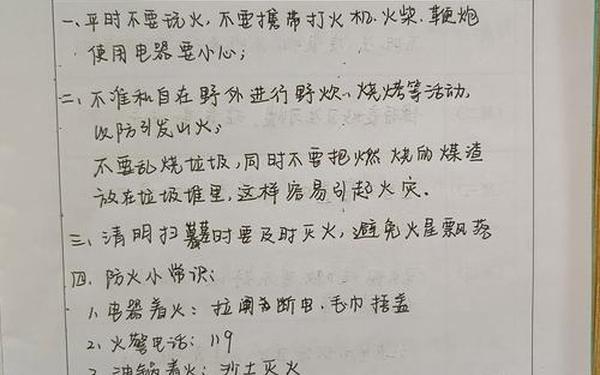 一、平时不要玩火，不要携带打火机、火柴、鞭炮
使用电器要小心；
二、不准私自在野外进行野炊、烧烤等活动，
以防引发山火；
不要乱烧垃圾，同时不要把燃烧的煤渣
放在垃圾堆里，这样容易引起火灾．
三、清明扫墓时要及时灭火，避免火星飘落
四．防火小常识：
1、电器着火：拉闸断电、毛巾捂盖
2、火警电话：119
3、油锅着火：沙土灭火